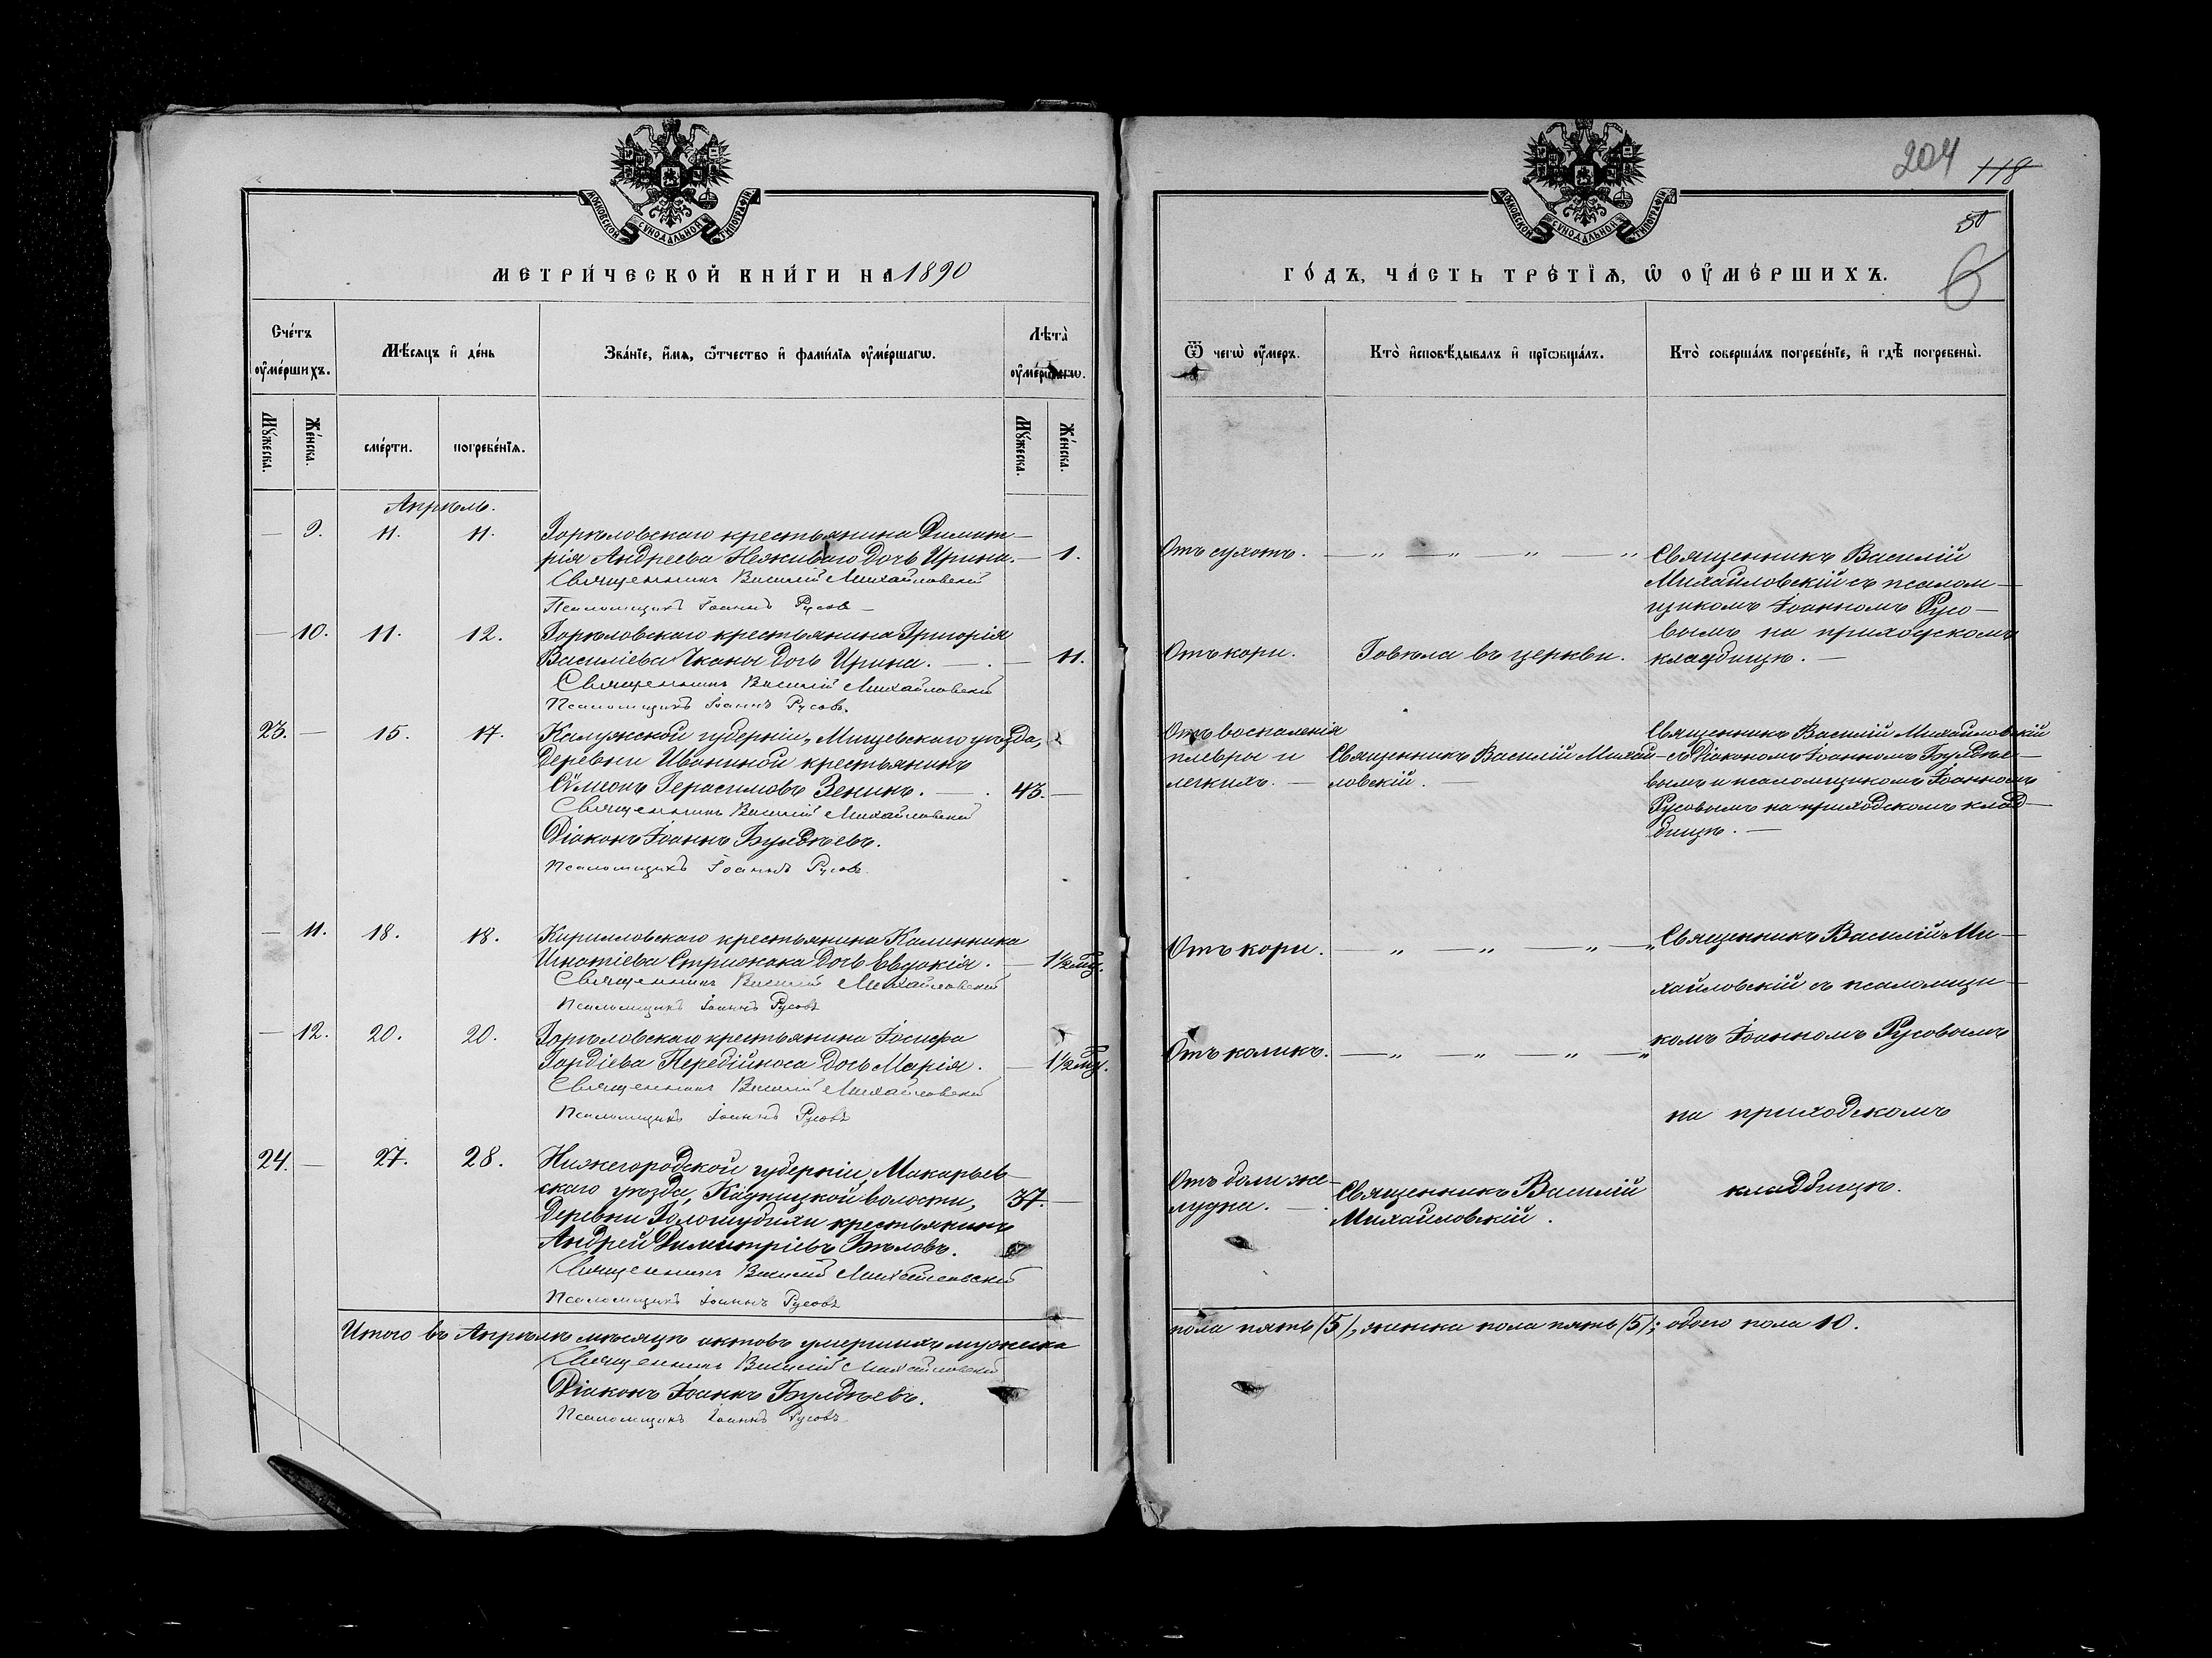 МОСКОВСКОЙ СѴНОДАЛЬНОЙ ТИПОГРАФІИ
МЕТРИ́ЧЕСКОЙ КНИ́ГИ НА 1890
Сче́тъ оу҆ме́ршихъ.
Мѣ́сяцъ и҆ де́нь
Зва́нїе, и҆́мя, ѻ҆́тчество и҆ фами́лїя оу҆ме́ршагѡ.
Лѣта̀ оу҆ме́ршагѡ.
Мꙋ́жеска.
Же́нска.
сме́рти.
погребе́нїя.
Мꙋ́жеска.
Же́нска.
Апрѣль.
— 9. 11. 11. Горѣловскаго крестьянина Димит-
рія Андреева Неживаго дочь Ирина. — 1.
Священникъ Василій Михайловскій
Псаломщикъ Іоаннъ Русов
— 10. 11. 12. Горѣловскаго крестьянина Григорія
Василіева Чканы дочь Ирина. — . — 11.
Священникъ Василій Михайловскій
Псаломщикъ Іоаннъ Русовъ.
23. — 15. 17. Калужской губерніи, Мищевскаго уѣзда,
деревни Иваниной крестьянинъ
Сѵмеонъ Герасимовъ Зенинъ. — . 43. —
Священникъ Василій Михайловскій
Діаконъ Іоаннъ Булдѣевъ.
Псаломщикъ Іоаннъ Русовъ.
— 11. 18. 18. Кирилловскаго крестьянина Калинника
Игнатіева Стрижака дочь Евдокія. — 1½ мц.
Священникъ Василій Михайловскій
Псаломщикъ Іоаннъ Русовъ
— 12. 20. 20. Горѣловскаго крестьянина Іосифа
Гордіева Перебійноса дочь Марія. — 1½ мц.
Священникъ Василій Михайловскій
Псаломщикъ Іоаннъ Русовъ
24. — 27. 28. Нижегородской губерніи, Макарьев-
скаго уѣзда, Кадницкой волости, 37. —
деревни крестьянинъ
Андрей Димитріевъ Бѣловъ.
Священникъ Василій Михайловскій
Псаломщикъ Іоаннъ Русовъ
Итого въ Апрѣлѣ мѣсяцѣ актовъ умершихъ мужеска
Священникъ Василій Михайловскій
Діаконъ Іоаннъ Булдѣевъ.
Псаломщикъ Іоаннъ Русовъ
204 118
50
6
МОСКОВСКОЙ СѴНОДАЛЬНОЙ ТИПОГРАФІИ
ГО́ДЪ, ЧА́СТЬ ТРЕ́ТЇЯ, Ѡ҆ ОУ҆МЕ́РШИХЪ.
Ѿ чегѡ̀ оу҆́меръ.
Кто̀ и҆сповѣ́дывалъ и҆ прїѡбща́лъ.
Кто̀ соверша́лъ погребе́нїе, и҆ гдѣ̀ погребены̀.
Отъ сухотъ. — „ — „ — „ — „ Священникъ Василій
Михайловскій съ псалом-
щикомъ Іоанномъ Русо-
вымъ на приходскомъ
Отъ кори. Говѣла въ церкви. кладбищѣ. —
Отъ воспаленія
плевры и
легкихъ. —
Священникъ Василій Михай-
ловскій.
Священникъ Василій Михайловскій
съ діакономъ Іоанномъ Булдѣе-
вымъ и псаломщикомъ Іоанномъ
Русовымъ на приходскомъ клад-
бищѣ. —
Отъ кори. — „ — „ — „ — „ Священникъ Василій Ми-
хайловскій съ псаломщи-
Отъ коликъ. — „ — „ — „ — „ комъ Іоанномъ Русовымъ
на приходскомъ
кладбищѣ.
Отъ боли же-
лудка. —
Священникъ Василій
Михайловскій.
пола пять (5), женска пола пять (5); обоего пола 10.